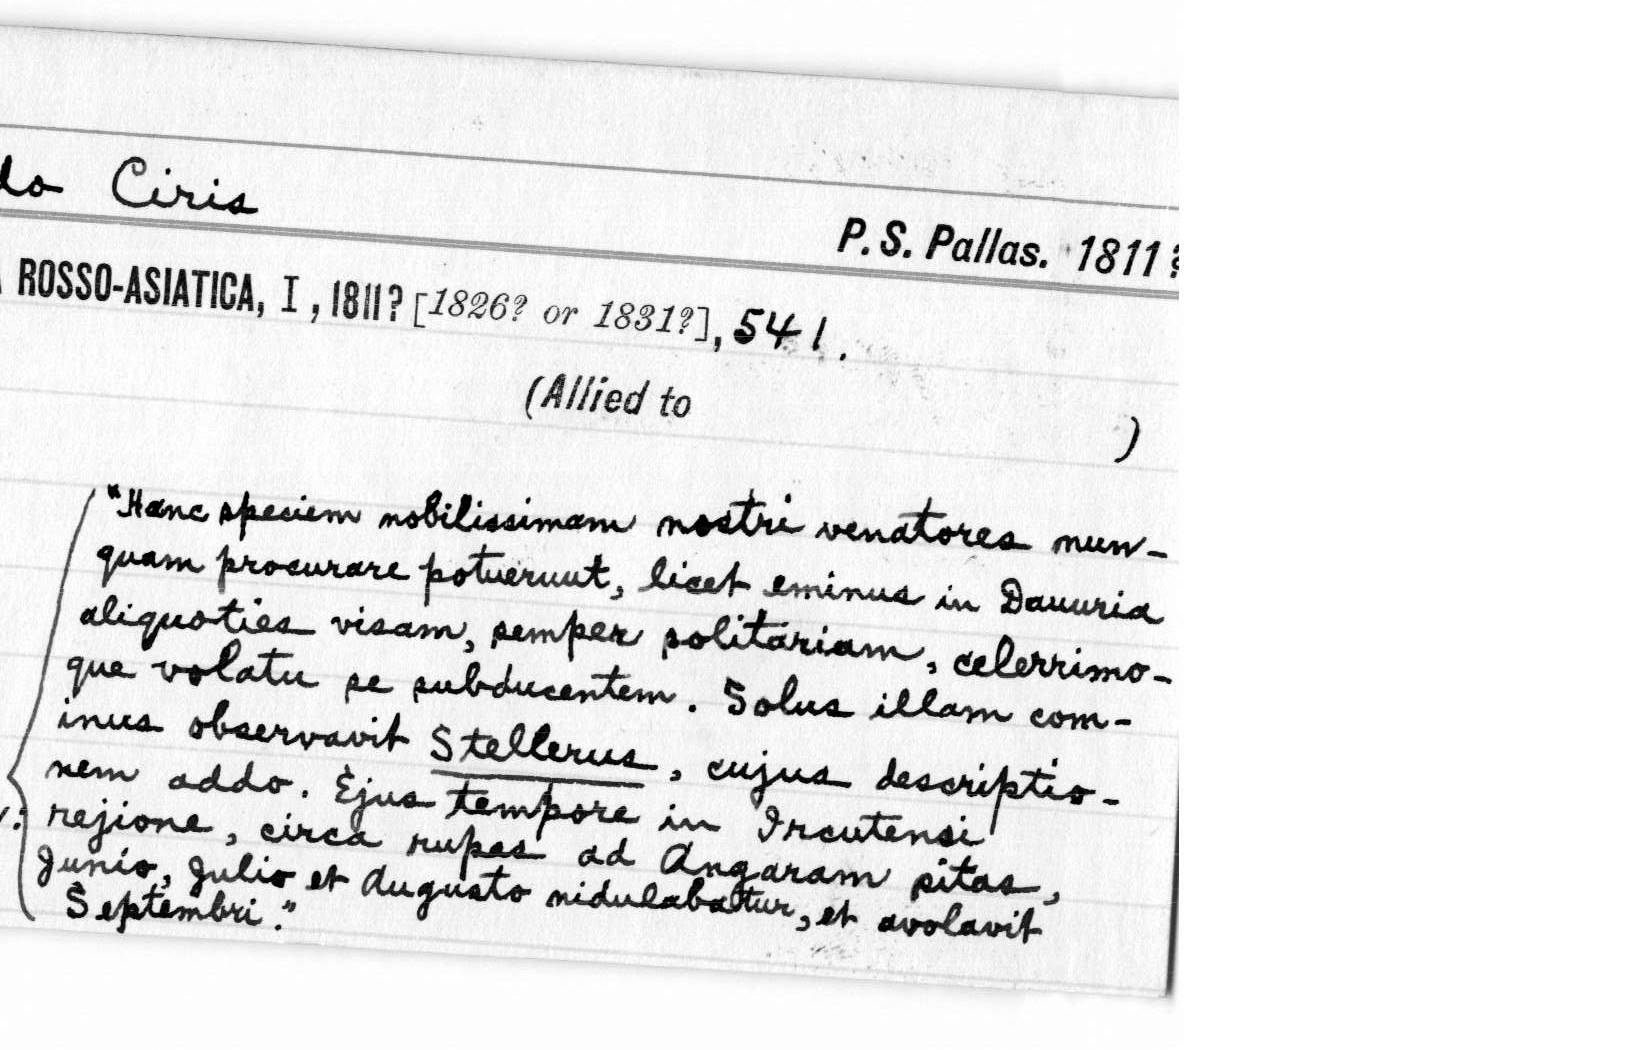 do Ciris
P. S. Pallas. 1811?
A ROSSO-ASIATICA, I, 1811? [1826? or 1831?], 541.
(Allied to )
"Hanc speciem nobilissimam nostri venatores nun-
quam procurare potuerunt, licet eminus in Dauuria
aliquoties visam, semper solitariam, celerrimo-
que volatu se subducentem. Solus illam com-
inus observavit Stellerus, cujus descriptio-
nem addo. Ejus tempore in Ircutensi
rejione, circa rupes ad Angaram sitas,
Junio, Julio et Augusto nidulabatur, et avolavit
Septembri."